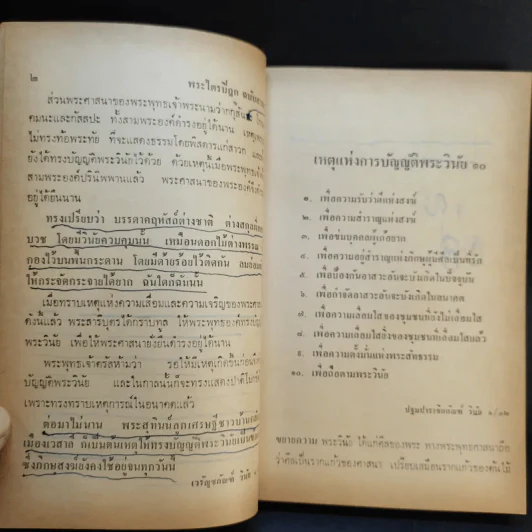 ๒
พระไตรปิฎก ฉบับ
ส่วนพระศาสนาของพระพุทธเจ้าพระนามว่ากุกุสันธะ
คมนะและกัสสปะ ทั้งสามพระองค์ดำรงอยู่ได้นาน
ไม่ทรงท้อพระทัย ที่จะแสดงธรรมโดยพิสดารแก่สาวก
ยังได้ทรงบัญญัติพระวินัยไว้ด้วย ด้วยเหตุนี้เมื่อพระพุทธเจ้า
สามพระองค์ปรินิพพานแล้ว พระศาสนาของพระองค์จึง
อยู่ได้ยืนนาน
ทรงเปรียบว่า บรรดาคฤหัสถ์ต่างชาติ ต่างสกุล
บวช โดยมีวินัยควบคุมนั้น เหมือนดอกไม้ต่างพรรณ
กองไว้บนพื้นกระดาน โดยมีด้ายร้อยไว้ติดกัน ลมย่อม
ให้กระจัดกระจายได้ยาก ฉันใดก็ฉันนั้น
เมื่อทราบเหตุแห่งความเสื่อมและความเจริญของพระศาสนา
ดังนี้แล้ว พระสารีบุตรได้กราบทูล ให้พระพุทธองค์ทรงบัญญัติ
พระวินัย เพื่อให้พระศาสนายั่งยืนดำรงอยู่ได้นาน
พระพุทธเจ้าตรัสห้ามว่า รอให้มีเหตุเกิดขึ้นก่อนจึง
บัญญัติพระวินัย และในกาลนั้นก็จะทรงแสดงปาติโมกข์
เพราะทรงทราบเหตุการณ์ในอนาคตแล้ว
ต่อมาไม่นาน พระสุทินน์ลูกเศรษฐีชาวบ้าน
เมืองเวสาลี ก็เป็นต้นเหตุให้ทรงบัญญัติพระวินัยเป็น
ซึ่งภิกษุสงฆ์ยังคงใช้อยู่จนทุกวันนี้
เวรัญชกัณฑ์ วินัย
เหตุแห่งการบัญญัติพระวินัย ๑๐
๑. เพื่อความรับว่าดีแห่งสงฆ์
๒. เพื่อความสำราญแห่งสงฆ์
๓. เพื่อข่มบุคคลผู้เก้อยาก
๔. เพื่อความอยู่สำราญแห่งภิกษุผู้มีศีลเป็นที่รัก
๕. เพื่อป้องกันอาสวะอันจะบังเกิดในปัจจุบัน
๖. เพื่อกำจัดอาสวะอันจะบังเกิดในอนาคต
๗. เพื่อความเลื่อมใสของชุมชนที่ยังไม่เลื่อมใส
๘. เพื่อความเลื่อมใสยิ่งของชุมชนที่เลื่อมใสแล้ว
๙. เพื่อความตั้งมั่นแห่งพระสัทธรรม
๑๐. เพื่อถือตามพระวินัย
ปฐมปาราชิกกัณฑ์ วินัย ๑/๓๒
ขยายความ พระวินัย ได้แก่ศีลของพระ ทางพระพุทธศาสนาถือ
ว่าศีลเป็นรากแก้วของศาสนา เปรียบเสมือนรากแก้วของต้นไม้